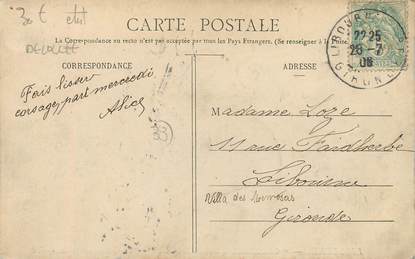 3e état
DÉCOLLÉE
CARTE POSTALE
La Correspondance au recto n'est pas acceptée par tous les Pays Étrangers. (Se renseigner à la
CORRESPONDANCE
ADRESSE
LIBOURNE
22 25
26 -7
08
GIRONDE
Fais lisser
corsage, part mercredi
Alice
Madame Loze
11 rue Faidherbe
Libourne
Villa des Mimosas
Gironde